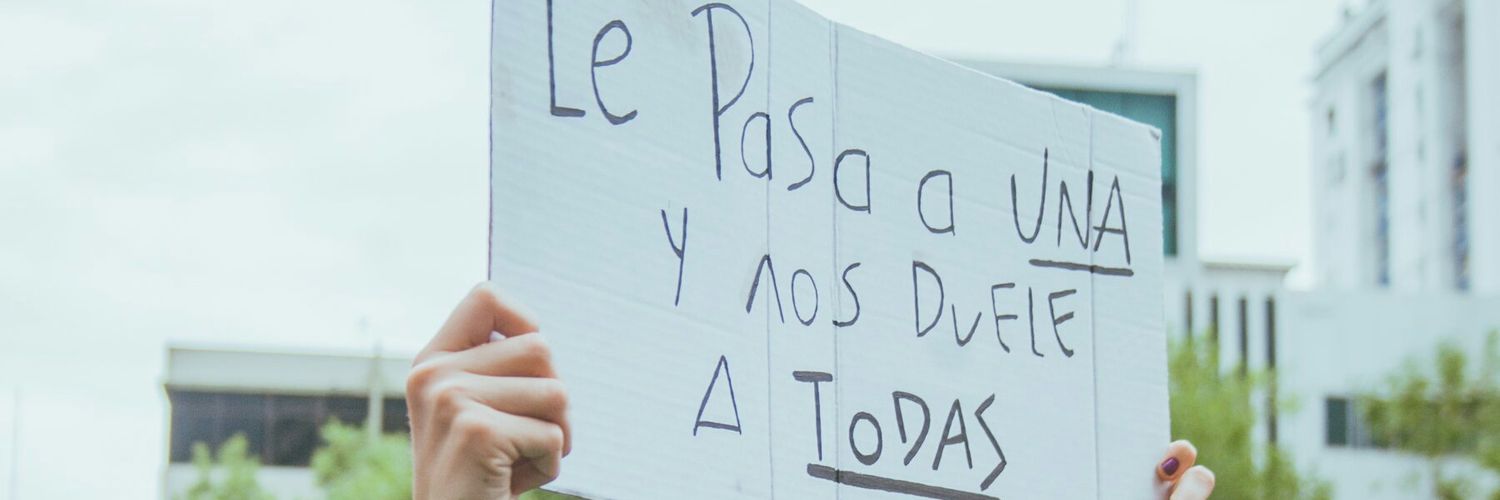 Le Pasa a UNA
y nos DUELE
A TODAS